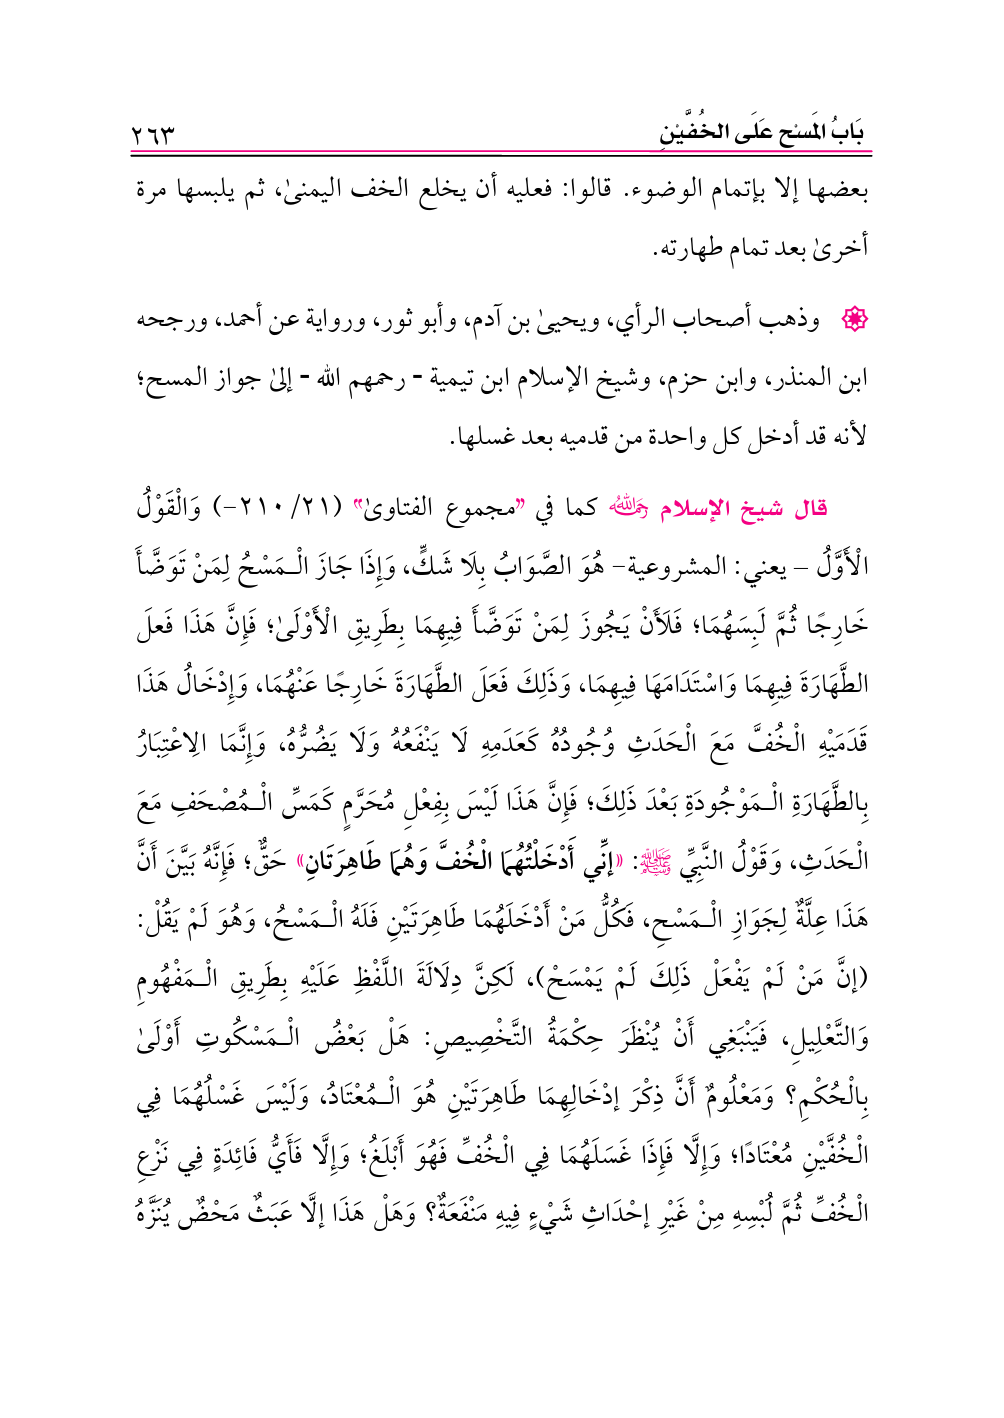 بَابُ المَسْحِ عَلَى الخُفَّيْنِ ٢٦٣
بعضها إلا بإتمام الوضوء. قالوا: فعليه أن يخلع الخف اليمنىٰ، ثم يلبسها مرة
أخرىٰ بعد تمام طهارته.
وذهب أصحاب الرأي، ويحيىٰ بن آدم، وأبو ثور، ورواية عن أحمد، ورجحه
ابن المنذر، وابن حزم، وشيخ الإسلام ابن تيمية - رحمهم الله - إلىٰ جواز المسح؛
لأنه قد أدخل كل واحدة من قدميه بعد غسلها.
قال شيخ الإسلام رحمه الله كما في "مجموع الفتاوىٰ" (٢١/ ٢١٠-) وَالْقَوْلُ
الْأَوَّلُ – يعني: المشروعية- هُوَ الصَّوَابُ بِلَا شَكٍّ، وَإِذَا جَازَ الْـمَسْحُ لِمَنْ تَوَضَّأَ
خَارِجًا ثُمَّ لَبِسَهُمَا؛ فَلَأَنْ يَجُوزَ لِمَنْ تَوَضَّأَ فِيهِمَا بِطَرِيقِ الْأَوْلَىٰ؛ فَإِنَّ هَذَا فَعلَ
الطَّهَارَةَ فِيهِمَا وَاسْتَدَامَهَا فِيهِمَا، وَذَلِكَ فَعَلَ الطَّهَارَةَ خَارِجًا عَنْهُمَا، وَإِدْخَالُ هَذَا
قَدَمَيْهِ الْخُفَّ مَعَ الْحَدَثِ وُجُودُهُ كَعَدَمِهِ لَا يَنْفَعُهُ وَلَا يَضُرُّهُ، وَإِنَّمَا الِاعْتِبَارُ
بِالطَّهَارَةِ الْـمَوْجُودَةِ بَعْدَ ذَلِكَ؛ فَإِنَّ هَذَا لَيْسَ بِفِعْلٍ مُحَرَّمٍ كَمَسِّ الْـمُصْحَفِ مَعَ
الْحَدَثِ، وَقَوْلُ النَّبِيِّ ﷺ: «إنِّي أَدْخَلْتُهُمَا الْخُفَّ وَهُمَا طَاهِرَتَانِ» حَقٌّ؛ فَإِنَّهُ بَيَّنَ أَنَّ
هَذَا عِلَّةٌ لِجَوَازِ الْـمَسْحِ، فَكُلُّ مَنْ أَدْخَلَهُمَا طَاهِرَتَيْنِ فَلَهُ الْـمَسْحُ، وَهُوَ لَمْ يَقُلْ:
(إنَّ مَنْ لَمْ يَفْعَلْ ذَلِكَ لَمْ يَمْسَحْ)، لَكِنَّ دِلَالَةَ اللَّفْظِ عَلَيْهِ بِطَرِيقِ الْـمَفْهُومِ
وَالتَّعْلِيلِ، فَيَنْبَغِي أَنْ يُنْظَرَ حِكْمَةُ التَّخْصِيصِ: هَلْ بَعْضُ الْـمَسْكُوتِ أَوْلَىٰ
بِالْحُكْمِ؟ وَمَعْلُومٌ أَنَّ ذِكْرَ إدْخَالِهِمَا طَاهِرَتَيْنِ هُوَ الْـمُعْتَادُ، وَلَيْسَ غَسْلُهُمَا فِي
الْخُفَّيْنِ مُعْتَادًا؛ وَإِلَّا فَإِذَا غَسَلَهُمَا فِي الْخُفِّ فَهُوَ أَبْلَغُ؛ وَإِلَّا فَأَيُّ فَائِدَةٍ فِي نَزْعِ
الْخُفِّ ثُمَّ لُبْسِهِ مِنْ غَيْرِ إحْدَاثِ شَيْءٍ فِيهِ مَنْفَعَةٌ؟ وَهَلْ هَذَا إلَّا عَبَثٌ مَحْضٌ يُنَزَّهُ